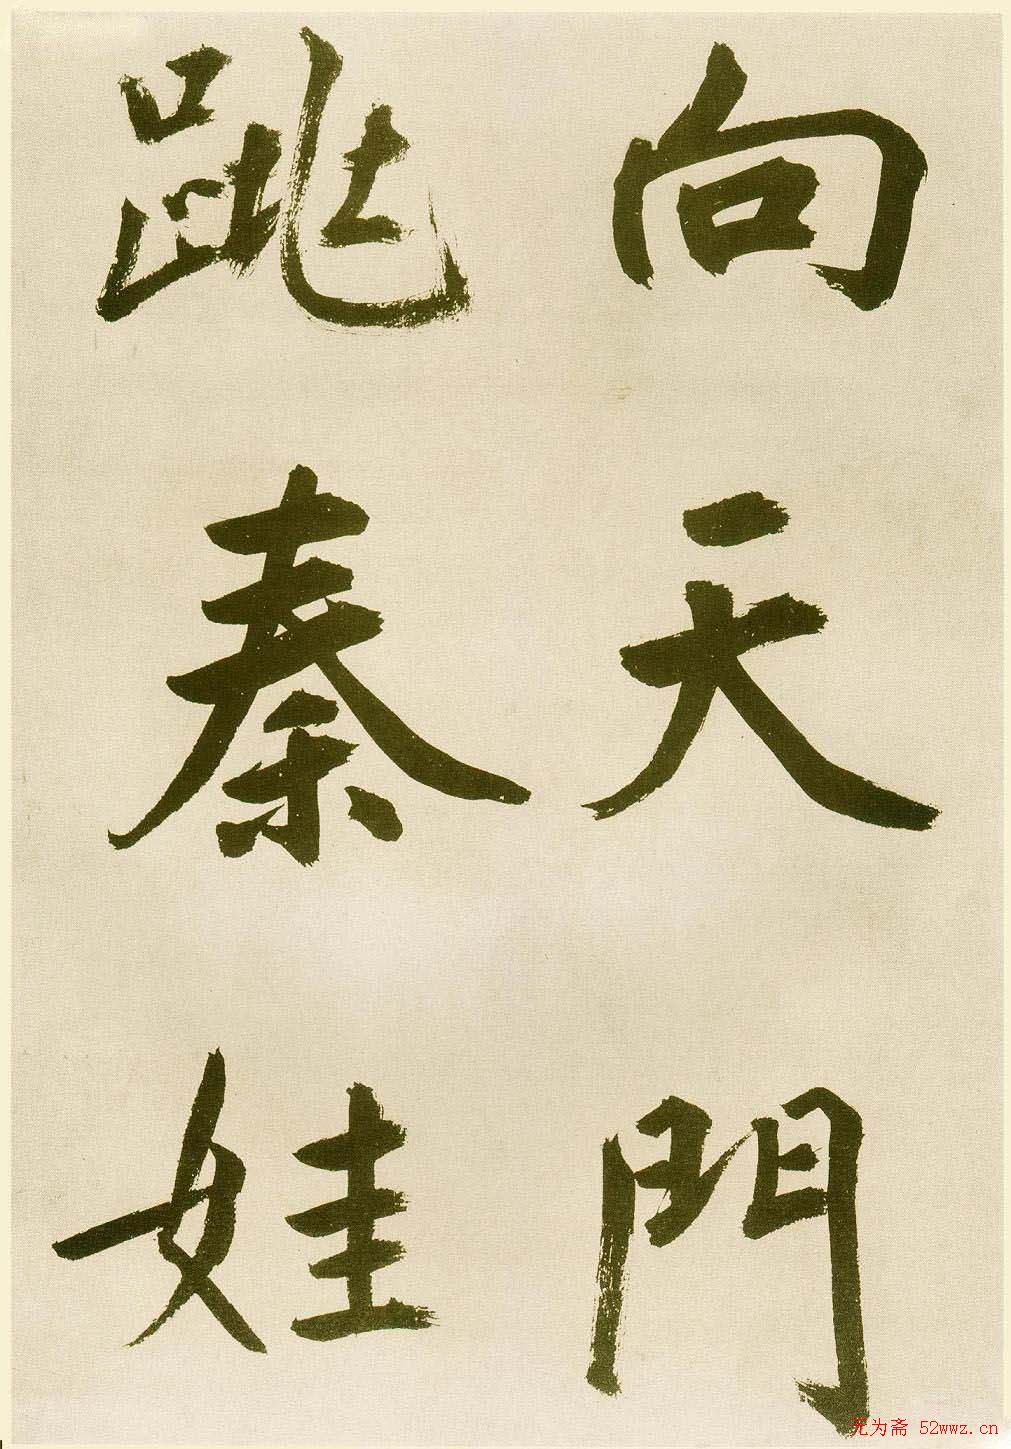 向天門
跳秦娃
无为斋 52wwz.cn